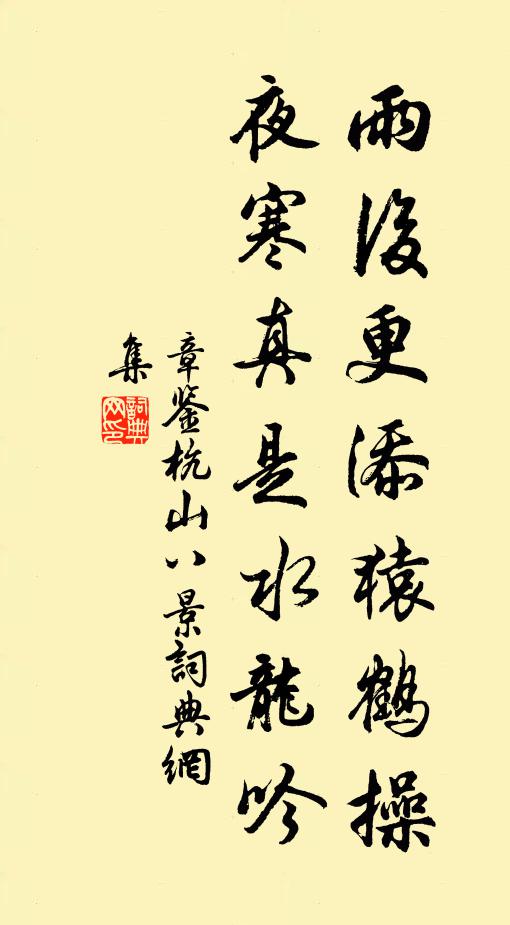 雨後更添猿鶴操
夜寒真是水龍吟
章鉴杭山八景詞典網
集
詞典網印